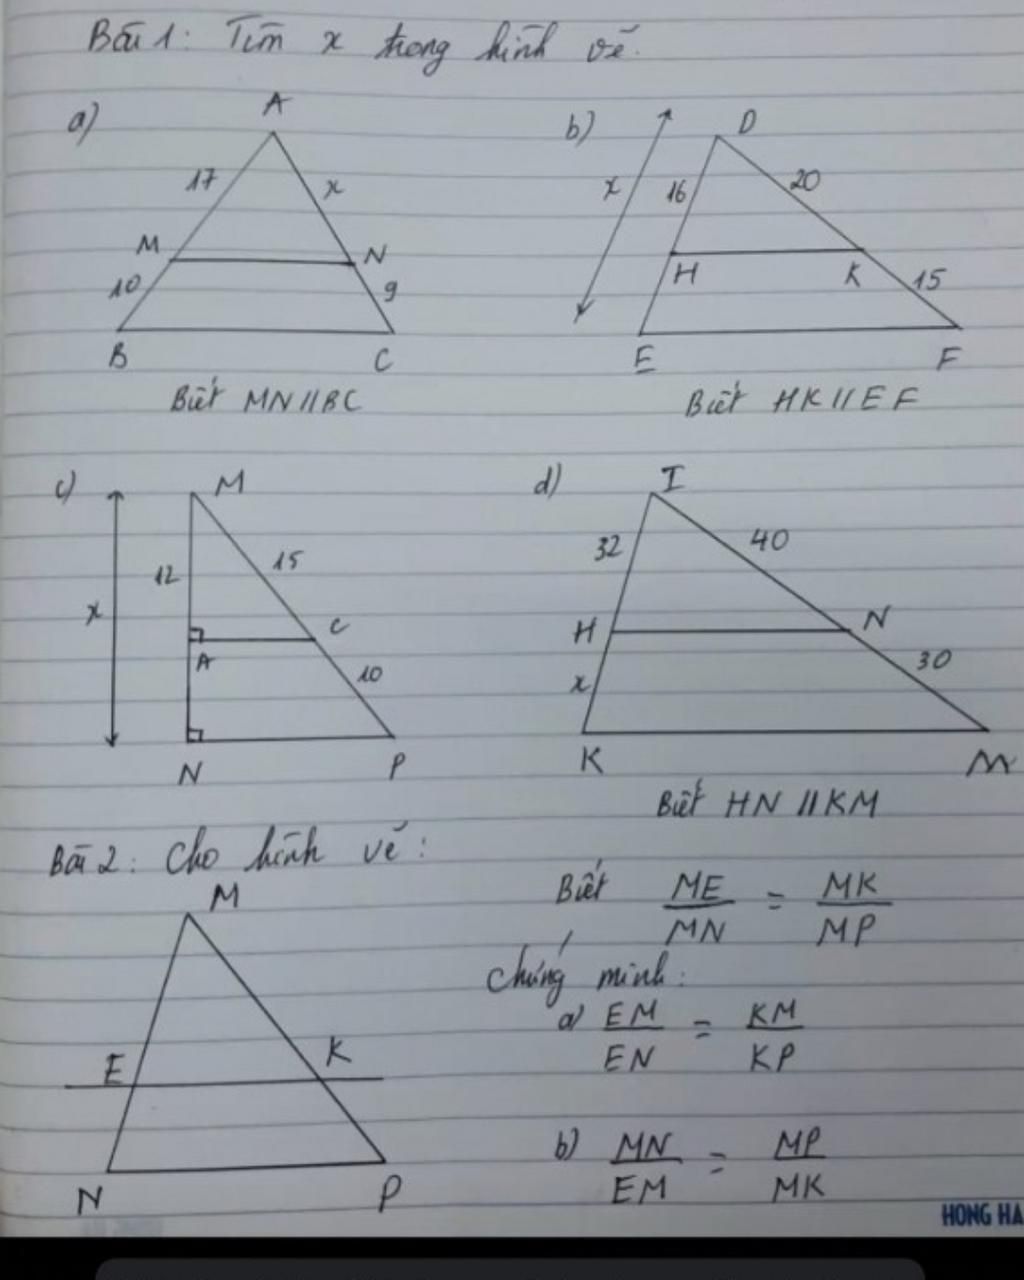 Bài 1: Tìm x trong hình vẽ.
a)
A
17
x
M
N
10
9
B
C
Biết MN//BC
b)
D
x
16
20
H
K
15
E
F
Biết HK//EF
c)
M
12
15
x
A
C
10
N
P
d)
I
32
40
H
N
x
30
K
M
Biết HN//KM
Bài 2: Cho hình vẽ:
M
E
K
N
P
Biết ME/MN = MK/MP
Chứng minh:
a) EM/EN = KM/KP
b) MN/EM = MP/MK
HONG HA